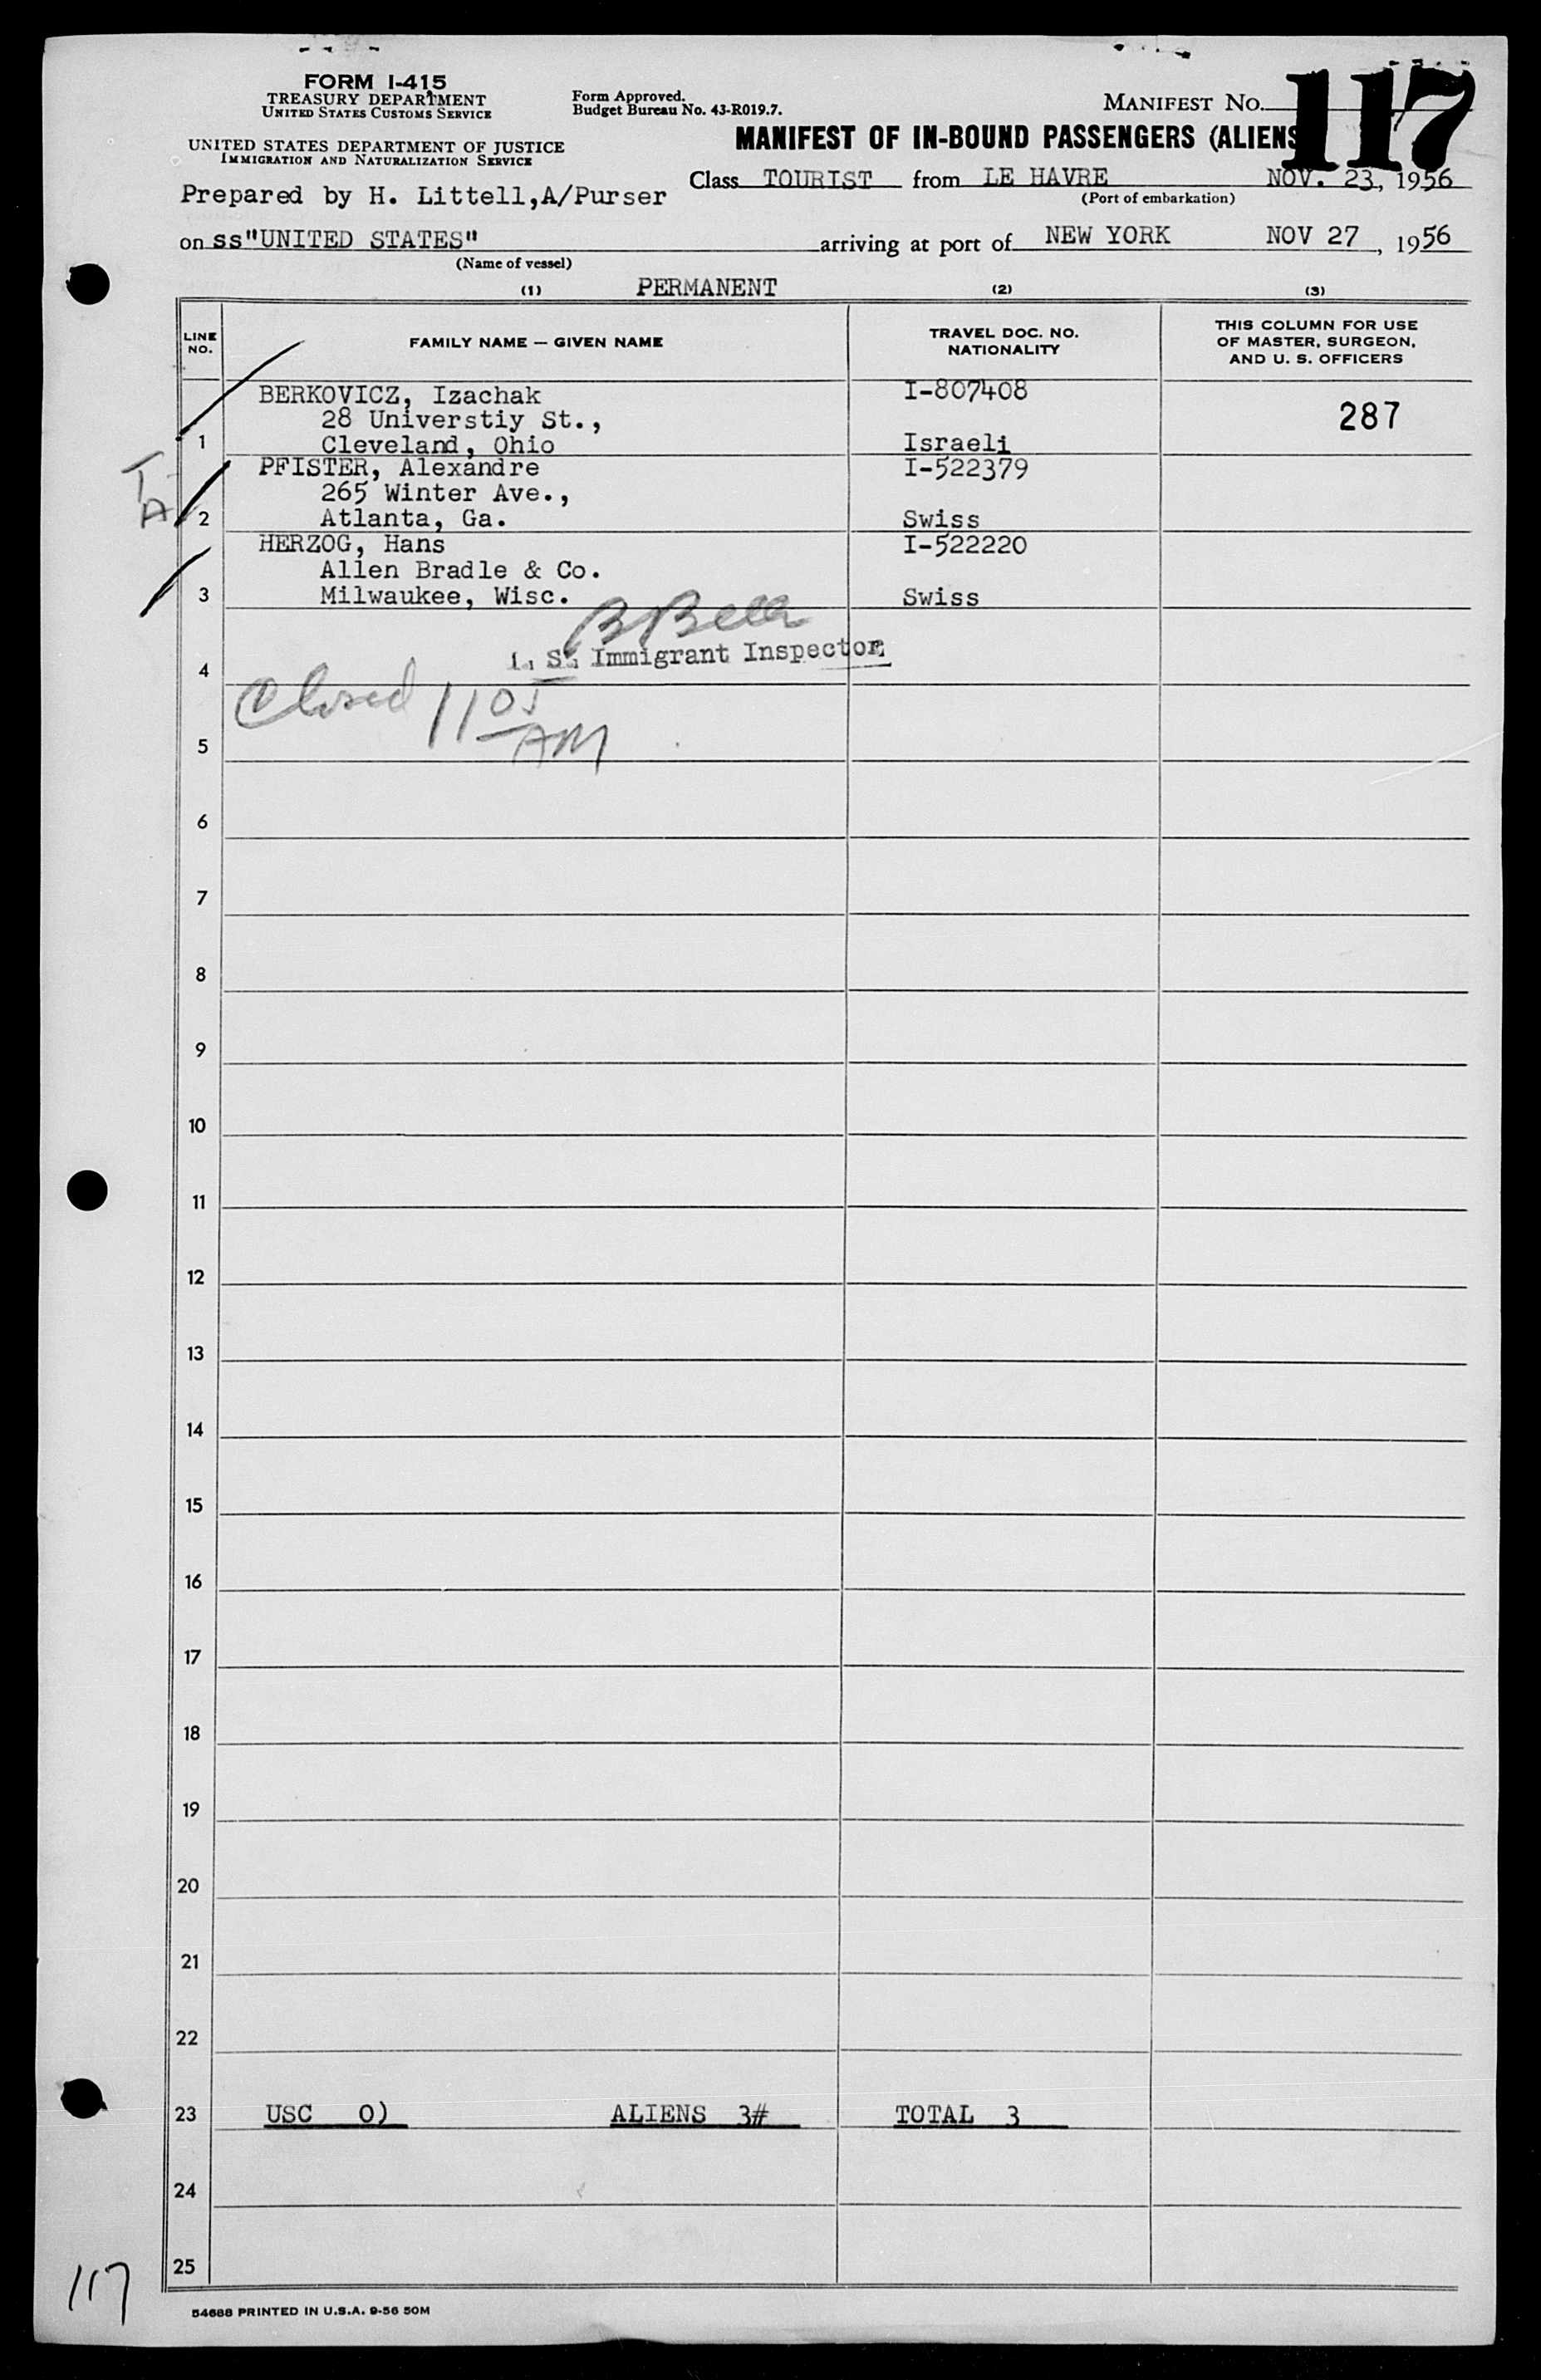 FORM I-415
TREASURY DEPARTMENT
UNITED STATES CUSTOMS SERVICE
UNITED STATES DEPARTMENT OF JUSTICE
IMMIGRATION AND NATURALIZATION SERVICE
Form Approved.
Budget Bureau No. 43-R019.7.
MANIFEST NO. 117
MANIFEST OF IN-BOUND PASSENGERS (ALIENS
Class TOURIST from LE HAVRE NOV. 23, 1956
(Port of embarkation)
Prepared by H. Littell,A/Purser
on ss"UNITED STATES" arriving at port of NEW YORK NOV 27, 1956
(Name of vessel)
(1) PERMANENT (2) (3)
LINE NO. FAMILY NAME — GIVEN NAME TRAVEL DOC. NO. NATIONALITY THIS COLUMN FOR USE OF MASTER, SURGEON, AND U. S. OFFICERS
BERKOVICZ, Izachak I-807408
28 Universtiy St., 287
1 Cleveland, Ohio Israeli
PFISTER, Alexandre I-522379
265 Winter Ave.,
2 Atlanta, Ga. Swiss
HERZOG, Hans I-522220
Allen Bradle & Co.
3 Milwaukee, Wisc. Swiss
S. Immigrant Inspector
4
Closed 1105
AM
5
6
7
8
9
10
11
12
13
14
15
16
17
18
19
20
21
22
23 USC 0) ALIENS 3# TOTAL 3
24
25
117
54688 PRINTED IN U.S.A. 9-56 50M